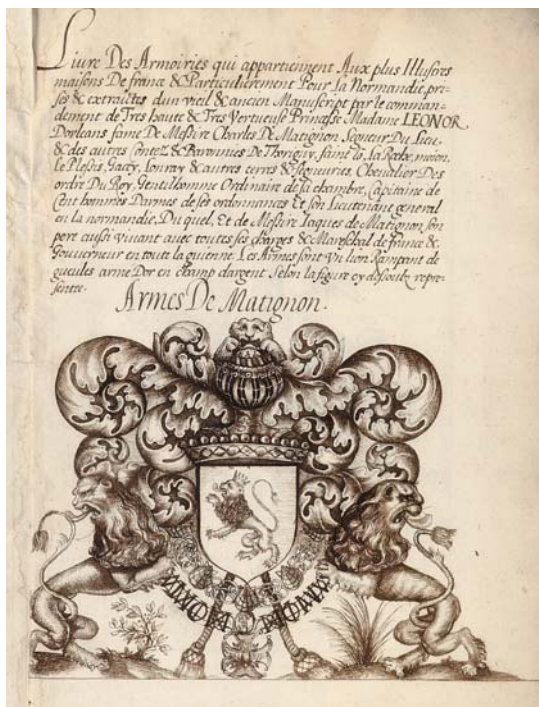 Livre Des Armoiries qui appartiennent Aux plus Illustres
maisons De france & Particulierement Pour La Normandie, pri-
ses & extraictes dun vieil & ancien Manuscript par le comman-
dement de Tres haute & Tres Vertueuse Princesse Madame LEONOR
Dorleans fame De Messire Charles De Matignon Segneur Du Lieu
& des autres Contez & Baronnies De Thorigny, saint lo, La Roche, moion,
le Plessis, Gacey, Lonray & autres terres & segneuries, Chevalier Des
ordre Du Roy, Gentilhomme Ordinaire de sa chambre, Capitaine de
Cent hommes Darmes de ses ordonnances Et son Lieutenant general
en la normandie. Du quel, Et de Messire Iaques de Matignon son
pere aussi vivant avec toutes ses charges & Mareschal de france &
Gouverneur en toute la guienne Les Armes sont Vn lion Rampant de
gueules arme Dor en champ dargent Selon la figure cy dessoubz repre-
sentee.
Armes De Matignon.